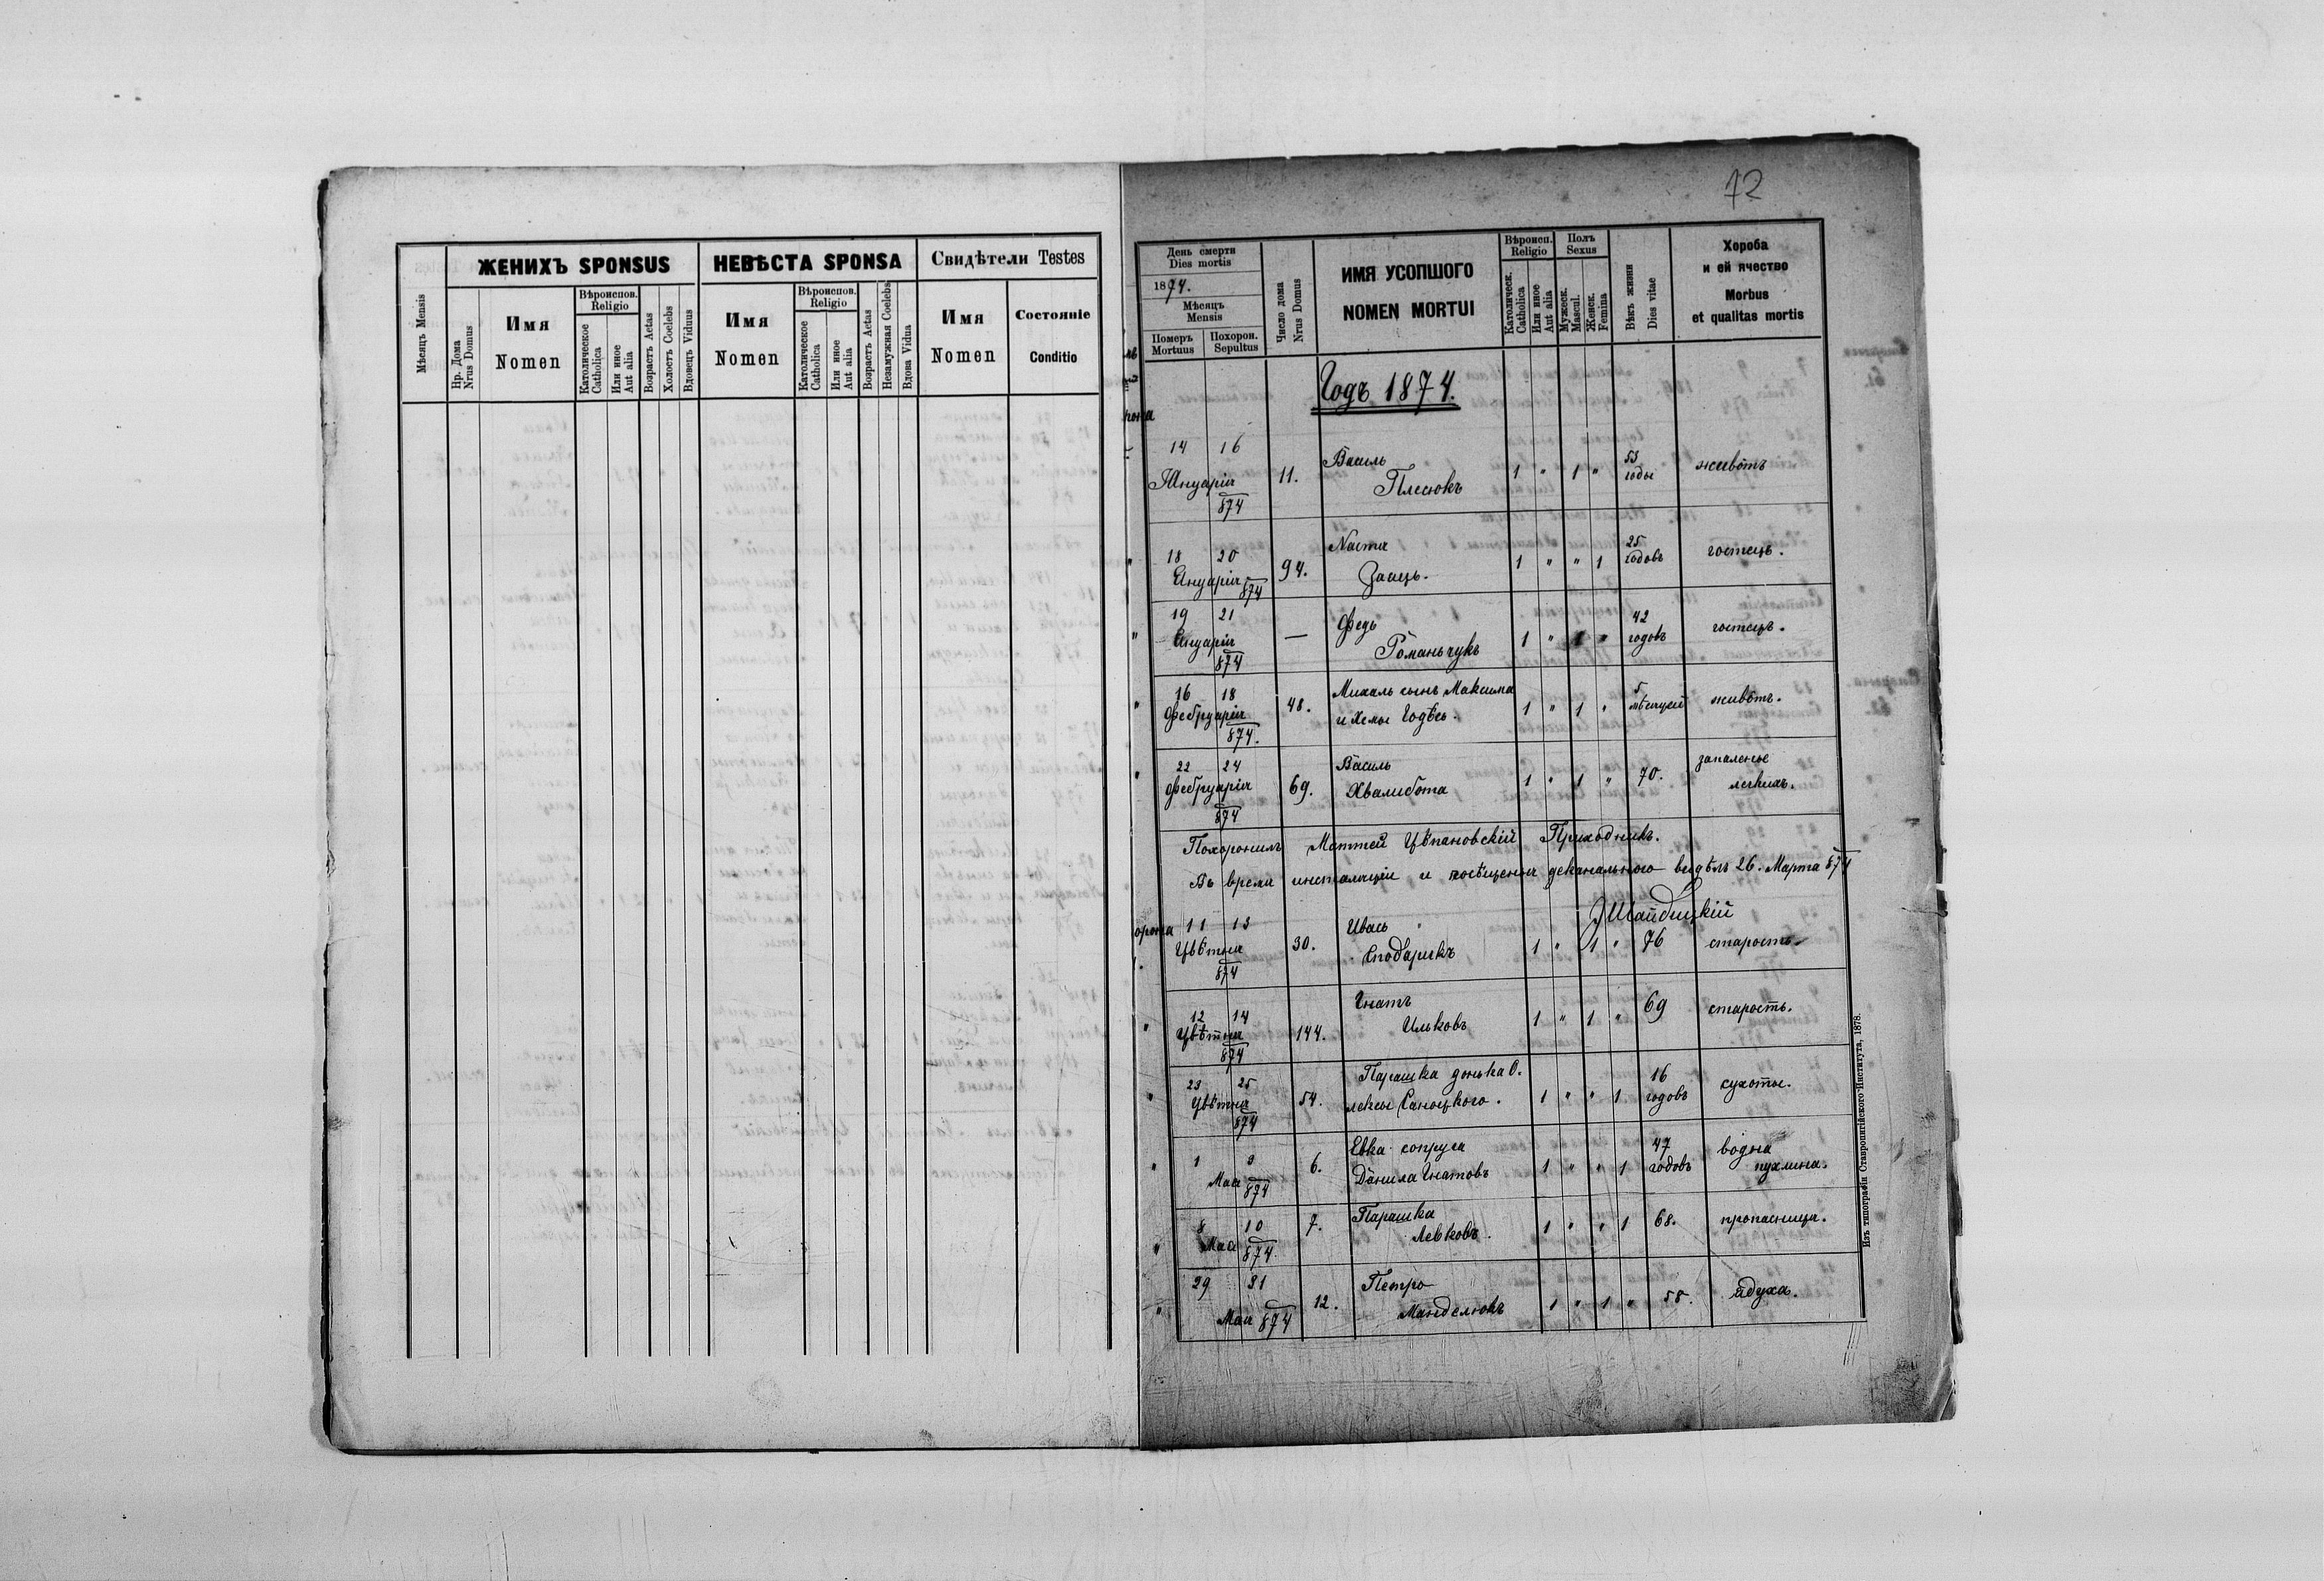 72
Мѣсяцъ Mensis
ЖЕНИХЪ SPONSUS
НЕВѢСТА SPONSA
Свидѣтели Testes
Нр. Дома
Nrus Domus
Имя
Nomen
Вѣроиспов.
Religio
Католическое
Catholica
Или иное
Aut alia
Возрастъ Aetas
Холостъ Coelebs
Вдовецъ Viduus
Имя
Nomen
Вѣроиспов.
Religio
Католическое
Catholica
Или иное
Aut alia
Возрастъ Aetas
Незамужная Coelebs
Вдова Vidua
Имя
Nomen
Состоянiе
Conditio
День смерти
Dies mortis
1874.
Мѣсяцъ
Mensis
Померъ
Mortuus
Похорон.
Sepultus
Число дома
Nrus Domus
ИМЯ УСОПШОГО
NOMEN MORTUI
Вѣроисп.
Religio
Католическ.
Catholica
Или иное
Aut alia
Полъ
Sexus
Мужеск.
Mascul.
Женск.
Femina
Вѣкъ жизни
Dies vitae
Хороба
и ей ячество
Morbus
et qualitas mortis
Годъ 1874.
14 16 Василь 53
Януарія 11. Плесюкъ 1 " 1 " годы живôтъ
874
18 20 Настя 25
Януарія 94. Заяцъ. 1 " " 1 годовъ гостецъ.
874
19 21 Федь 42
Януарія — Романьчукъ 1 " 1 " годовъ гостецъ.
874
16 18 Михаль сынъ Максима 5
Фебруарія 48. и 1 " 1 " мѣсяцей живôтъ.
874.
22 24 Василь запаленье
Фебруарія 69. Хвалибота 1 " 1 " 70. легкихъ.
874
Похоронилъ Маттей Цѣпановскій Приходникъ.
Въ время инсталяціи и посѣщенія деканального видѣлъ 26. Марта 874
11 13 Ивась
Цвѣтня 30. 1 " 1 " 76 старость.
874
12 14 Гнатъ
Цвѣтня 144. Ильковъ 1 " 1 " 69 старость.
874
23 25 Парашка донька О- 16
Цвѣтня 54. лексы Саноцкого. 1 " " 1 годовъ сухоты.
874
1 3 Евка супруга 47 водна
Мая 6. Данила Гнатовъ 1 " " 1 годовъ пухлина.
874
8 10 7. Парашка 1 " " 1 68. пропасниця.
Мая 874. Левковъ.
29 31 Петро
Мая 874 12. Манделюкъ 1 " 1 " 58. ядуха.
Изъ типографiи Ставропигiйского Института, 1878.